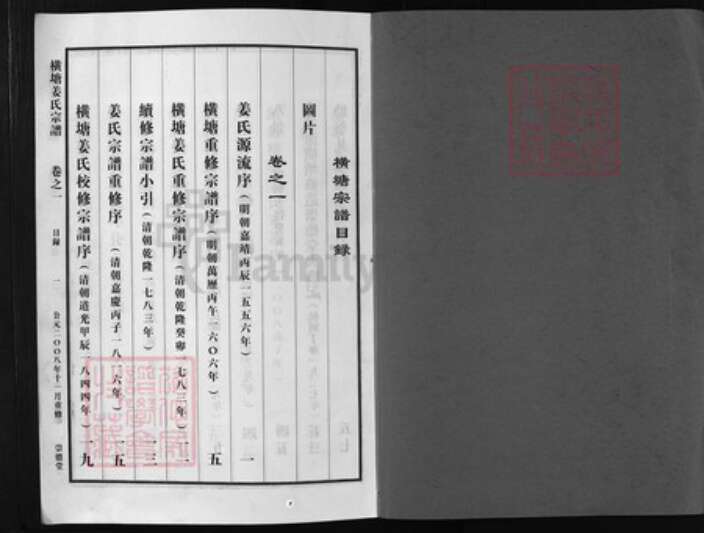 橫塘宗譜目錄
圖片
卷之一
姜氏源流序(明朝嘉靖丙辰一五五六年) 一
橫塘重修宗譜序(明朝萬歷丙午一六〇六年) 五
橫塘姜氏重修宗譜序(清朝乾隆癸卯一七八三年) 一一
續修宗譜小引(清朝乾隆一七八三年) 一三
姜氏宗譜重修序(清朝嘉慶丙子一八一六年) 一五
橫塘姜氏校修宗譜序(清朝道光甲辰一八四四年) 一九
橫塘姜氏宗譜 卷之一 目錄 一 公元二〇〇八年十一月重修 崇德堂